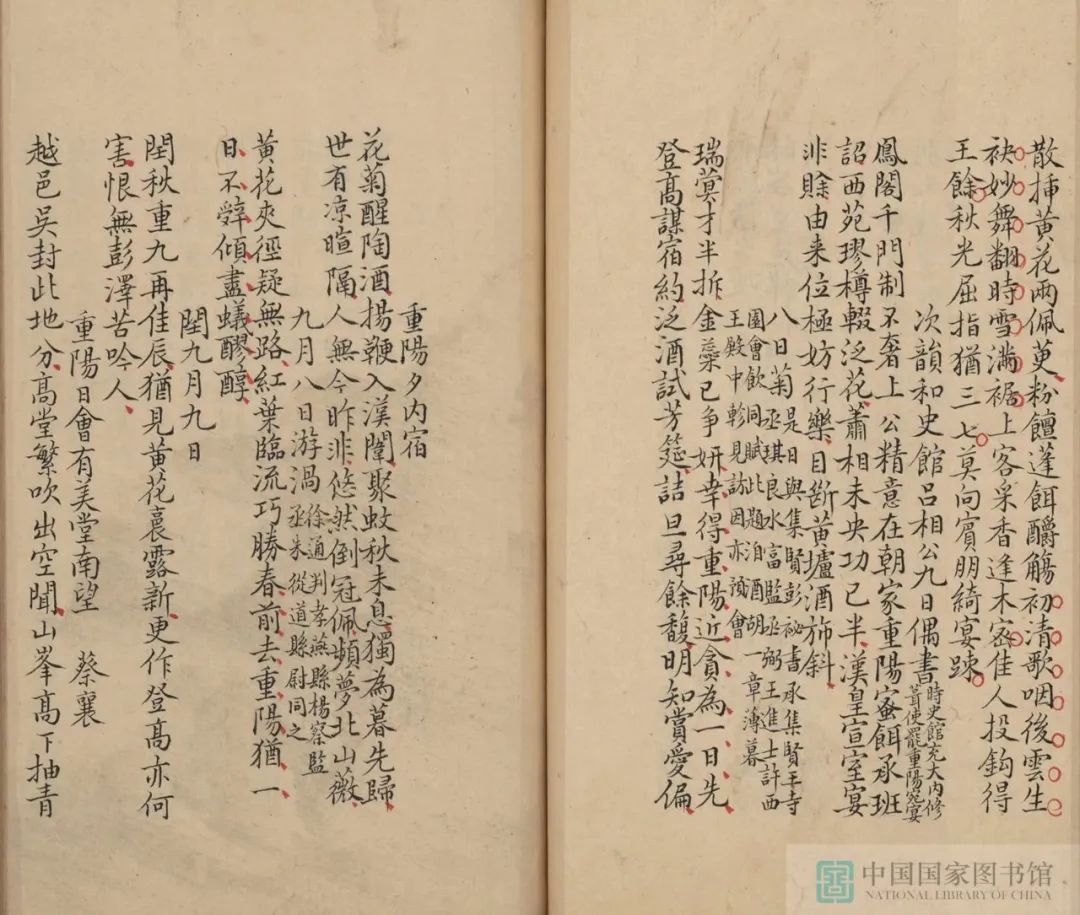 散揷黄花兩佩萸粉饘蓬餌酹觴初清歌咽後雲生
袂妙舞翻時雪滿裾上客采香逢木密佳人投鈎得
王餘秋光屈指猶三七莫向賓朋綺宴踈
次韻和史館呂相公九日偶書時史館充大内修
葺使罷重陽宛宴
鳳閣千門制不奢上公精意在朝家重陽蜜餌承班
詔西苑璆樽輟泛花蕭相未央功已半漢皇宣室宴
非賖由来位極妨行樂目斷黄壚酒斾斜
八日菊是日與集賢彭祕書承集賢王寺
丞琪良水富監丞弼王進士許西
園會飲同賦此題洎酒胡一章薄暮
王殿中軫見訪因亦預會
瑞蓂才半拆金蘂已争妍幸得重陽近貪為一日先
登髙謀宿約泛酒試芳筵詰旦尋餘馥明知賞愛偏
重陽夕内宿
花菊醒陶酒揚鞭入漢闈聚蚊秋未息獨為暮先歸
世有凉暄隔人無今昨非悠然倒冠佩頻夢北山薇
九月八日游渦徐通判孝燕縣楊察監
丞朱從道縣尉同之
黄花夾徑疑無路紅葉臨流巧勝春前去重陽猶一
日不辤傾盡蟻醪醇
閏九月九日
閏秋重九再佳辰猶見黄花裛露新更作登髙亦何
害恨無彭澤苦吟人
重陽日會有美堂南望 蔡襄
越邑吴封此地分髙堂繁吹出空聞山峯髙下抽青
中国国家图书馆
NATIONAL LIBRARY OF CHINA